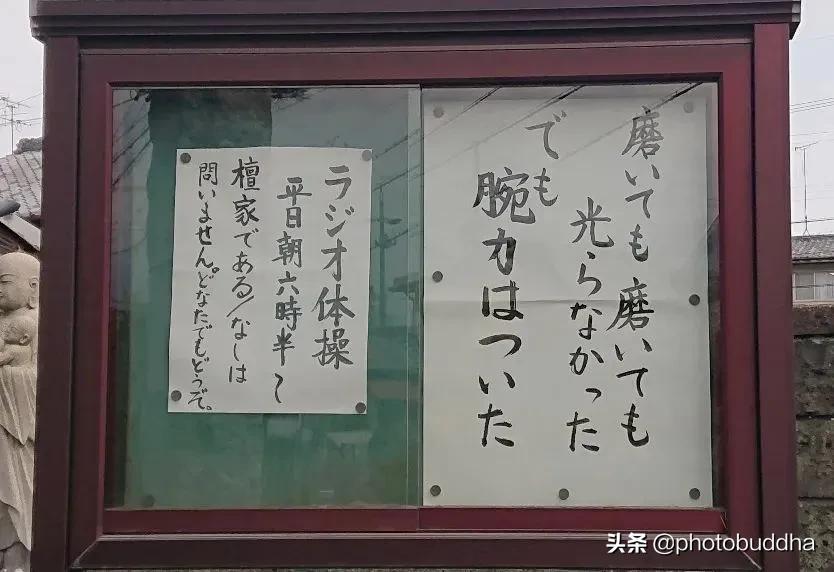 磨いても磨いても
光らなかった
でも
腕力はついた
ラジオ体操
平日朝六時半〜
檀家である/なしは
問いません。どなたでもどうぞ。
头条 @photobuddha